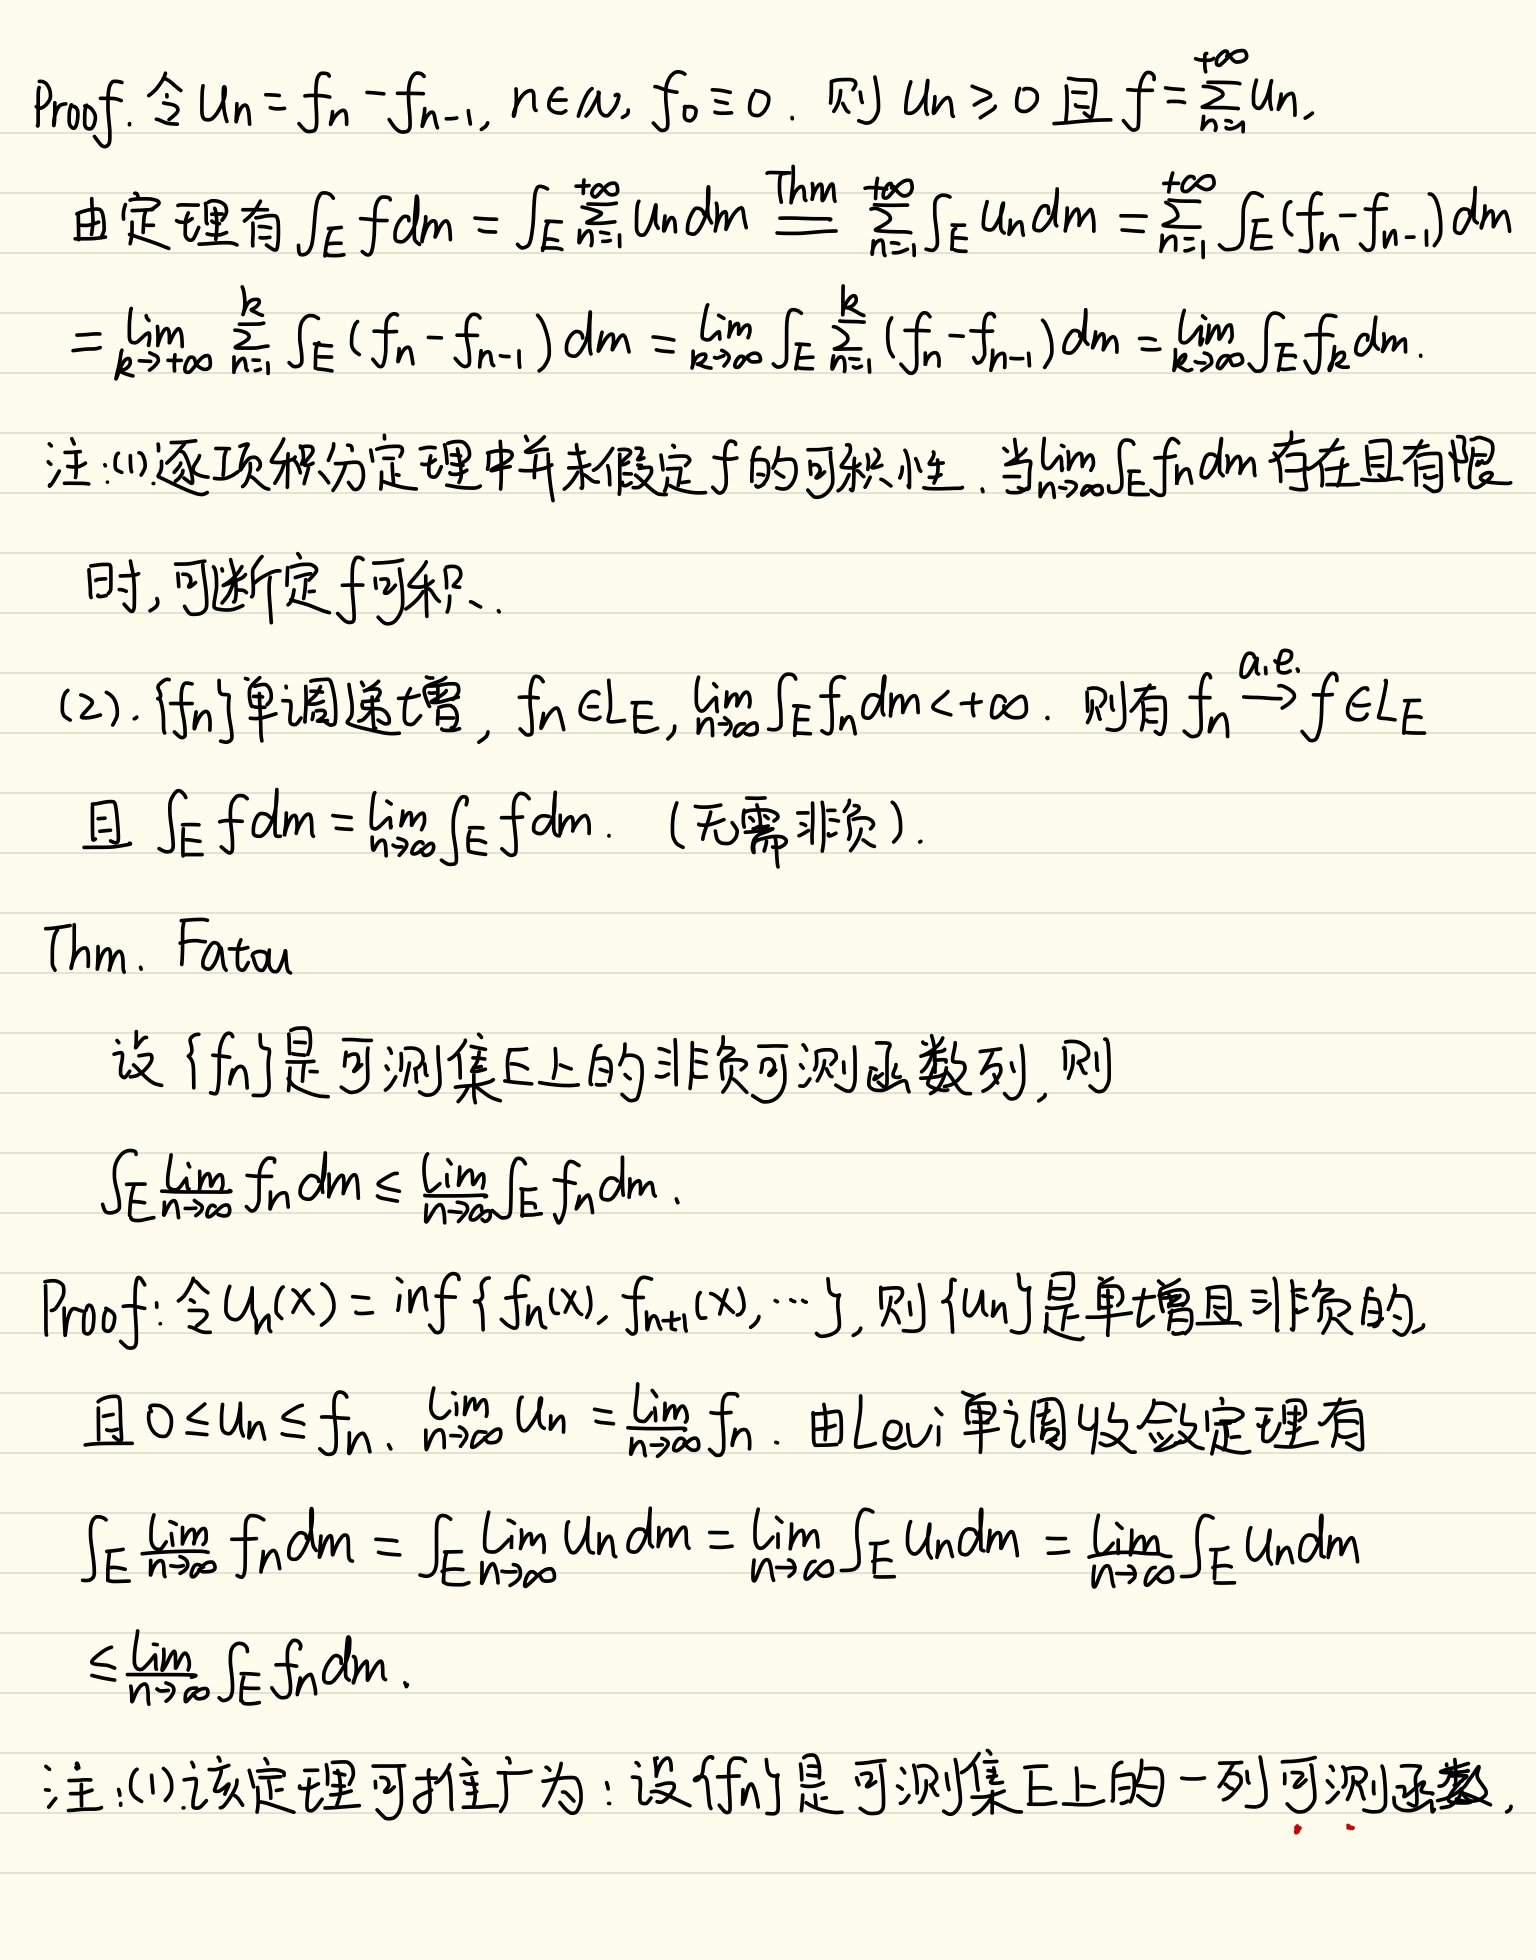 Proof. 令 Uₙ = fₙ - fₙ₋₁, n∈ℕ, f₀ ≡ 0. 则 Uₙ ≥ 0 且 f = ∑_{n=1}^{+∞} Uₙ,
由定理有 ∫_E f dm = ∫_E ∑_{n=1}^{+∞} Uₙ dm \overset{Thm}{=} ∑_{n=1}^{+∞} ∫_E Uₙ dm = ∑_{n=1}^{+∞} ∫_E (fₙ - fₙ₋₁) dm
= lim_{k→+∞} ∑_{n=1}^{k} ∫_E (fₙ - fₙ₋₁) dm = lim_{k→∞} ∫_E ∑_{n=1}^{k} (fₙ - fₙ₋₁) dm = lim_{k→∞} ∫_E f_k dm.
注:(1).逐项积分定理中并未假定 f 的可积性. 当 lim_{n→∞} ∫_E fₙ dm 存在且有限
时,可断定 f 可积.
(2). {fₙ}单调递增, fₙ ∈ L_E, lim_{n→∞} ∫_E fₙ dm < +∞. 则有 fₙ \overset{a.e.}{→} f ∈ L_E
且 ∫_E f dm = lim_{n→∞} ∫_E f dm. (无需非负).
Thm. Fatou
设 {fₙ}是可测集E上的非负可测函数列, 则
∫_E \underline{lim}_{n→∞} fₙ dm ≤ \underline{lim}_{n→∞} ∫_E fₙ dm.
Proof: 令 Uₙ(x) = inf {fₙ(x), fₙ₊₁(x), ⋯}, 则 {uₙ}是单增且非负的,
且 0 ≤ uₙ ≤ fₙ、 lim_{n→∞} uₙ = \underline{lim}_{n→∞} fₙ. 由Levi单调收敛定理有
∫_E \underline{lim}_{n→∞} fₙ dm = ∫_E lim_{n→∞} uₙ dm = lim_{n→∞} ∫_E uₙ dm = \underline{lim}_{n→∞} ∫_E uₙ dm
≤ \underline{lim}_{n→∞} ∫_E fₙ dm.
注:(1).该定理可推广为: 设{fₙ}是可测集E上的一列可测函数,